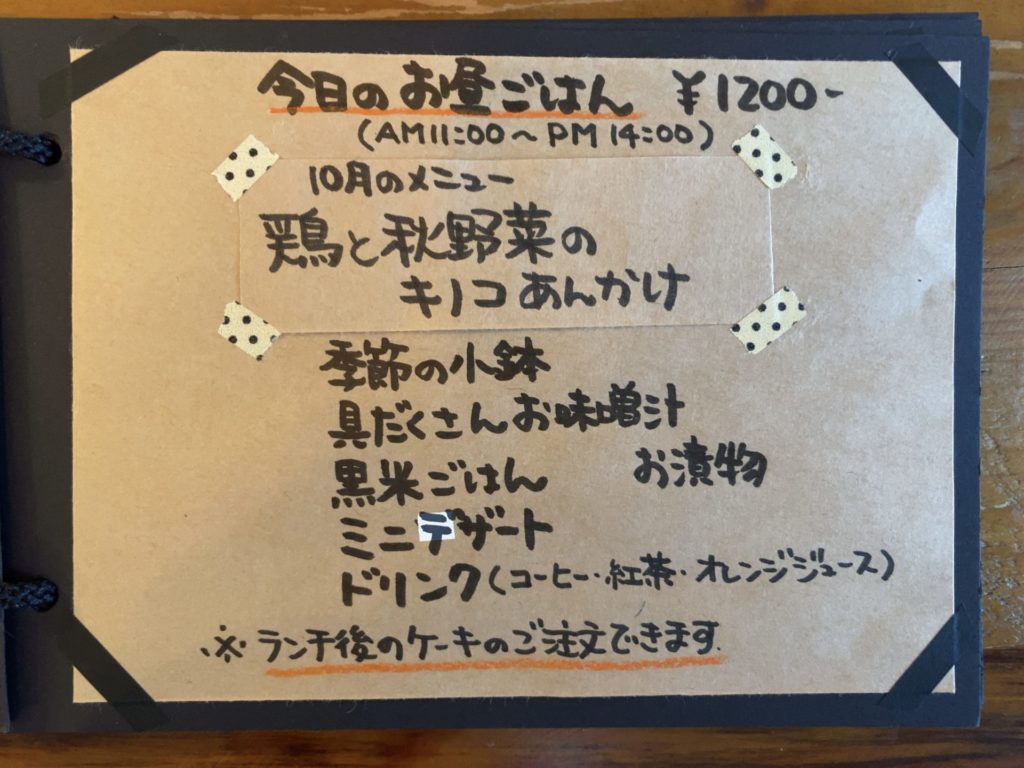 今日のお昼ごはん ¥1200-
(AM11:00～PM14:00)
10月のメニュー
鶏と秋野菜の
キノコあんかけ
季節の小鉢
具だくさんお味噌汁
黒米ごはん お漬物
ミニデザート
ドリンク(コーヒー・紅茶・オレンジジュース)
※ランチ後のケーキのご注文できます.